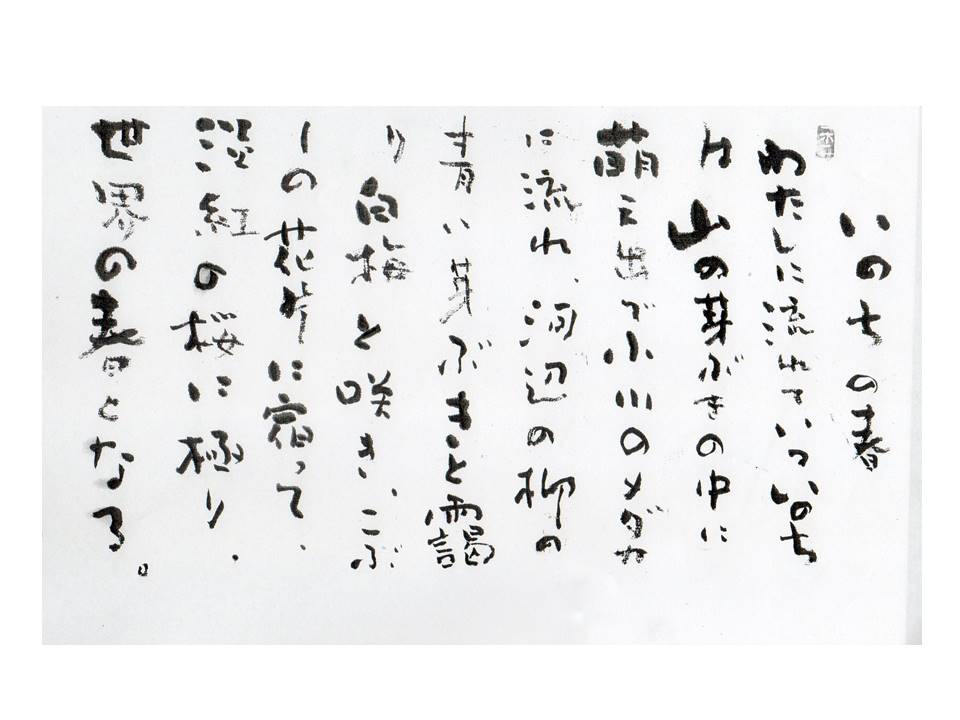 いのちの春
わたしに流れているいのち
は山の芽ぶきの中に
萌え出で小川のメダカ
に流れ、河辺の柳の
青い芽ぶきと靄
り白梅と咲き、こぶ
しの花片に宿って、
紅の桜に極り、
世界の春となる。